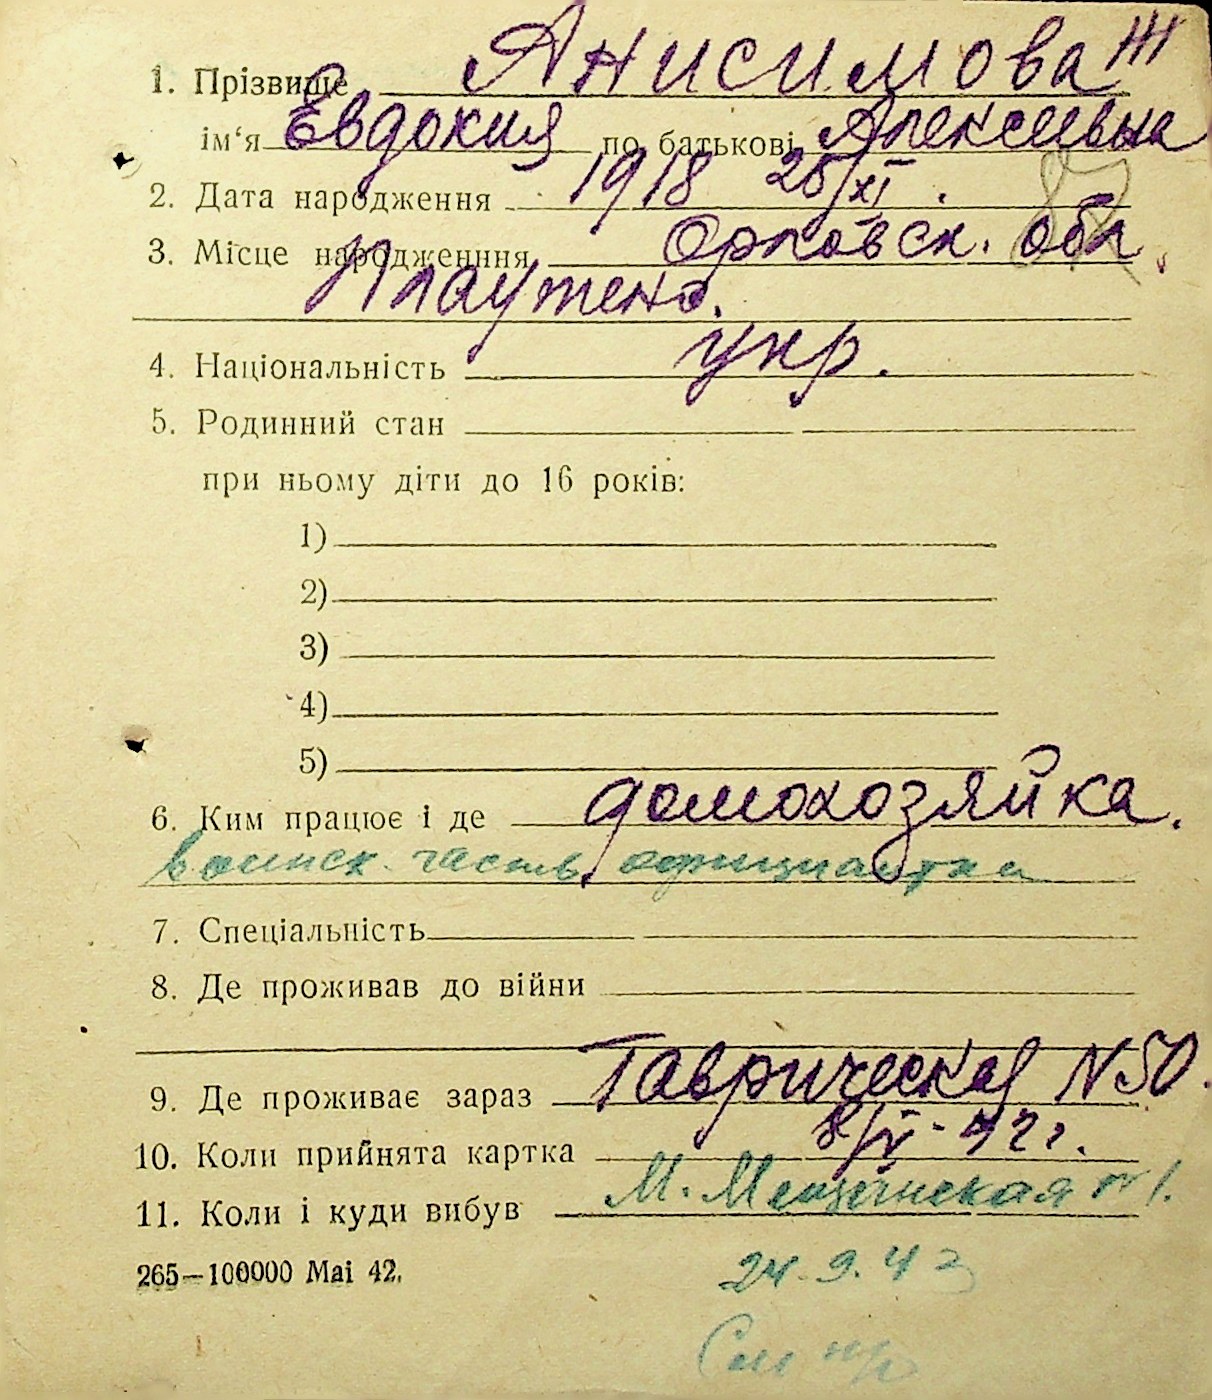 1. Прізвище Анисимова III
ім'я Евдокия по батькові Алексеивна
2. Дата народження 1918 26/XI.
3. Місце народженння Орловск. обл
4. Національність укр.
5. Родинний стан
при ньому діти до 16 років:
1)
2)
3)
4)
5)
6. Ким працює і де домохозяйка.
воинск. часть официантка
7. Спеціальність
8. Де проживав до війни
9. Де проживає зараз Таврическая N 50.
10. Коли прийнята картка 8/V - 42 г.
11. Коли і куди вибув М. Мещанская № 1.
265—100000 Mai 42.
24. 9. 42
См